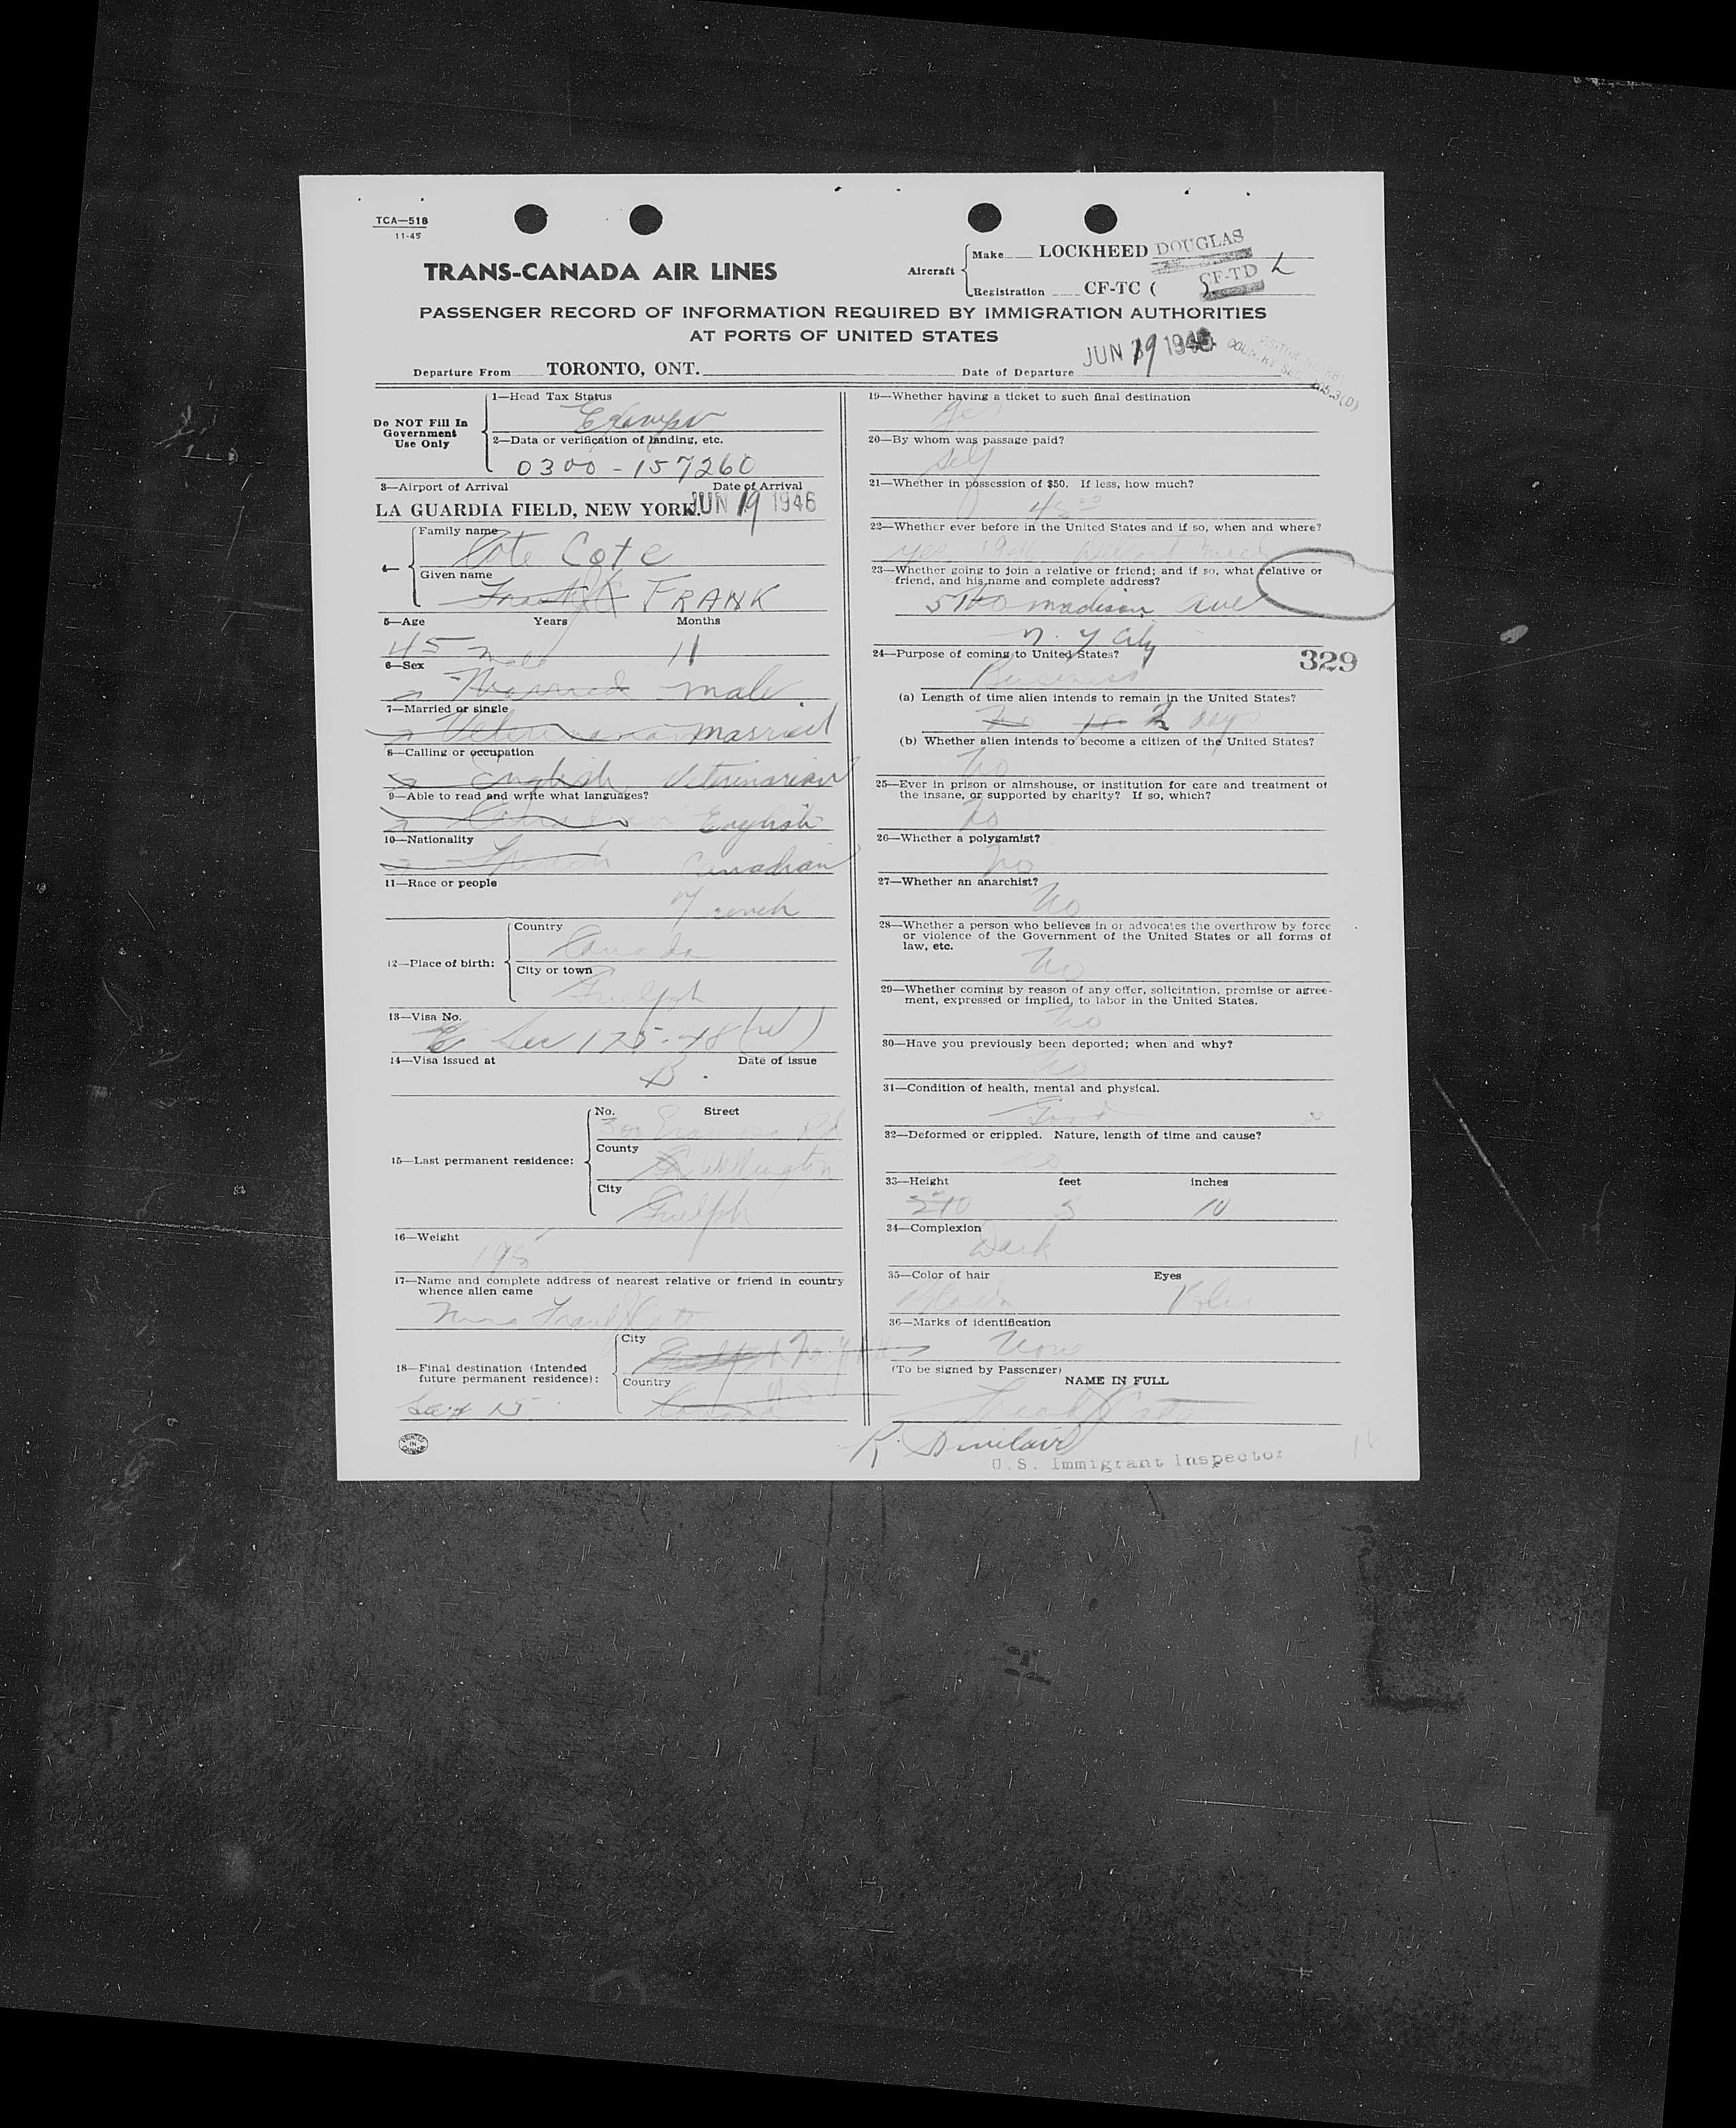 TCA—518
11-45
TRANS-CANADA AIR LINES
Aircraft
Make LOCKHEED DOUGLAS
Registration CF-TC ( ) CF-TD L
PASSENGER RECORD OF INFORMATION REQUIRED BY IMMIGRATION AUTHORITIES
AT PORTS OF UNITED STATES
Departure From TORONTO, ONT. Date of Departure JUN 19 1946
Do NOT Fill In
Government
Use Only
1—Head Tax Status
Exempt
2—Data or verification of landing, etc.
0300-157260
3—Airport of Arrival Date of Arrival
LA GUARDIA FIELD, NEW YORK. JUN 19 1946
4—
Family name
Cote Cote
Given name
Frank FRANK
5—Age Years Months
45 11
male
6—Sex
Married male
7—Married or single
Veterinarian married
8—Calling or occupation
English Veterinarian
9—Able to read and write what languages?
Canadian English
10—Nationality
French Canadian
11—Race or people
French
12—Place of birth:
Country
Canada
City or town
Guelph
13—Visa No.
Sec 175-48 (w)
14—Visa issued at Date of issue
B.
15—Last permanent residence:
No. Street
Eramosa Rd
County
Wellington
City
Guelph
16—Weight
195
17—Name and complete address of nearest relative or friend in country
whence alien came
Mrs Frank Cote
18—Final destination (Intended
future permanent residence):
City
Guelph
Country
Canada
PRINTED IN CANADA
19—Whether having a ticket to such final destination
Yes
20—By whom was passage paid?
Self
21—Whether in possession of $50. If less, how much?
45.00
22—Whether ever before in the United States and if so, when and where?
yes 1946 Detroit Mich
23—Whether going to join a relative or friend; and if so, what relative or
friend, and his name and complete address?
Madison Ave
N. Y City
329
24—Purpose of coming to United States?
Business
(a) Length of time alien intends to remain in the United States?
2 days
(b) Whether alien intends to become a citizen of the United States?
No
25—Ever in prison or almshouse, or institution for care and treatment of
the insane, or supported by charity? If so, which?
No
26—Whether a polygamist?
No
27—Whether an anarchist?
No
28—Whether a person who believes in or advocates the overthrow by force
or violence of the Government of the United States or all forms of
law, etc.
No
29—Whether coming by reason of any offer, solicitation, promise or agree-
ment, expressed or implied, to labor in the United States.
No
30—Have you previously been deported; when and why?
No
31—Condition of health, mental and physical.
Good
32—Deformed or crippled. Nature, length of time and cause?
No
33—Height feet inches
5 10
34—Complexion
Dark
35—Color of hair Eyes
Black Blue
36—Marks of identification
None
(To be signed by Passenger)
NAME IN FULL
Frank Cote
R. Sinclair
U.S. Immigrant Inspector